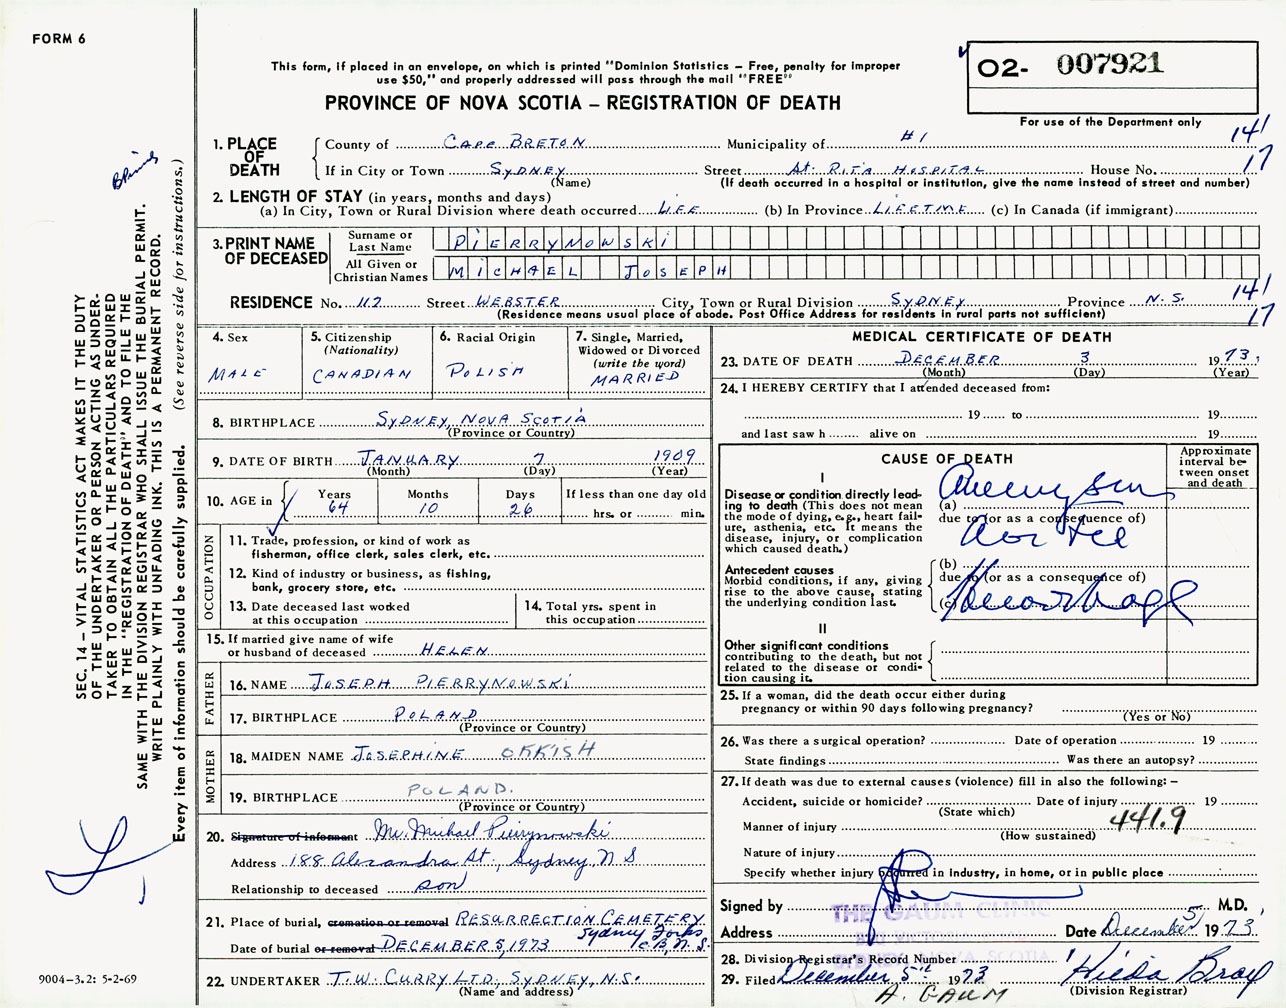 FORM 6
This form, if placed in an envelope, on which is printed "Dominion Statistics – Free, penalty for improper
use $50," and properly addressed will pass through the mail "FREE"
PROVINCE OF NOVA SCOTIA – REGISTRATION OF DEATH
02- 007921
For use of the Department only
1. PLACE OF DEATH
County of CAPE BRETON Municipality of #1 141
If in City or Town SYDNEY Street St. RITA HOSPITAL House No. 17
(Name) (If death occurred in a hospital or institution, give the name instead of street and number)
2. LENGTH OF STAY (in years, months and days)
(a) In City, Town or Rural Division where death occurred LIFE (b) In Province LIFETIME (c) In Canada (if immigrant)
3. PRINT NAME OF DECEASED
Surname or Last Name PIERRYNOWSKI
All Given or Christian Names MICHAEL JOSEPH
RESIDENCE No. 112 Street WEBSTER City, Town or Rural Division SYDNEY Province N.S. 141
(Residence means usual place of abode. Post Office Address for residents in rural parts not sufficient) 17
4. Sex MALE
5. Citizenship (Nationality) CANADIAN
6. Racial Origin POLISH
7. Single, Married, Widowed or Divorced (write the word) MARRIED
8. BIRTHPLACE SYDNEY, NOVA SCOTIA
(Province or Country)
9. DATE OF BIRTH JANUARY 7 1909
(Month) (Day) (Year)
10. AGE in Years 64 Months 10 Days 26 If less than one day old hrs. or min.
OCCUPATION
11. Trade, profession, or kind of work as
fisherman, office clerk, sales clerk, etc.
12. Kind of industry or business, as fishing,
bank, grocery store, etc.
13. Date deceased last worked
at this occupation
14. Total yrs. spent in
this occupation
15. If married give name of wife
or husband of deceased HELEN
FATHER
16. NAME JOSEPH PIERRYNOWSKI
17. BIRTHPLACE POLAND
(Province or Country)
MOTHER
18. MAIDEN NAME JOSEPHINE OKKISH
19. BIRTHPLACE POLAND.
(Province or Country)
20. Signature of informant Mr. Michael Pierrynowski
Address 188 Alexandra St., Sydney, N S
Relationship to deceased son
21. Place of burial, cremation or removal RESURRECTION CEMETERY
Sydney Forks
Date of burial or removal DECEMBER 5, 1973 C.B., N.S.
22. UNDERTAKER T.W. CURRY LTD., SYDNEY, N.S.
(Name and address)
MEDICAL CERTIFICATE OF DEATH
23. DATE OF DEATH DECEMBER 3 1973
(Month) (Day) (Year)
24. I HEREBY CERTIFY that I attended deceased from:
19 to 19
and last saw h alive on 19
CAUSE OF DEATH
Approximate interval between onset and death
I
Disease or condition directly lead-
ing to death (This does not mean
the mode of dying, e.g., heart fail-
ure, asthenia, etc. It means the
disease, injury, or complication
which caused death.)
(a) Aneurysm
due to (or as a consequence of)
Aortic
Antecedent causes
Morbid conditions, if any, giving
rise to the above cause, stating
the underlying condition last.
(b)
due to (or as a consequence of)
(c) Hemorrhage
II
Other significant conditions
contributing to the death, but not
related to the disease or condi-
tion causing it.
25. If a woman, did the death occur either during
pregnancy or within 90 days following pregnancy?
(Yes or No)
26. Was there a surgical operation? Date of operation 19
State findings Was there an autopsy?
27. If death was due to external causes (violence) fill in also the following: –
Accident, suicide or homicide? Date of injury 19
(State which)
Manner of injury 441.9
(How sustained)
Nature of injury
Specify whether injury occurred in industry, in home, or in public place
Signed by M.D.
THE GAUM CLINIC
Address Date December 5, 1973
28. Division Registrar's Record Number
29. Filed December 5th 1973 Hilda Bray
A. GAUM (Division Registrar)
SEC. 14 – VITAL STATISTICS ACT MAKES IT THE DUTY
OF THE UNDERTAKER OR PERSON ACTING AS UNDER-
TAKER TO OBTAIN ALL THE PARTICULARS REQUIRED
IN THE "REGISTRATION OF DEATH" AND TO FILE THE
SAME WITH THE DIVISION REGISTRAR WHO SHALL ISSUE THE BURIAL PERMIT.
WRITE PLAINLY WITH UNFADING INK. THIS IS A PERMANENT RECORD.
Every item of information should be carefully supplied. (See reverse side for instructions.)
9004-3.2: 5-2-69